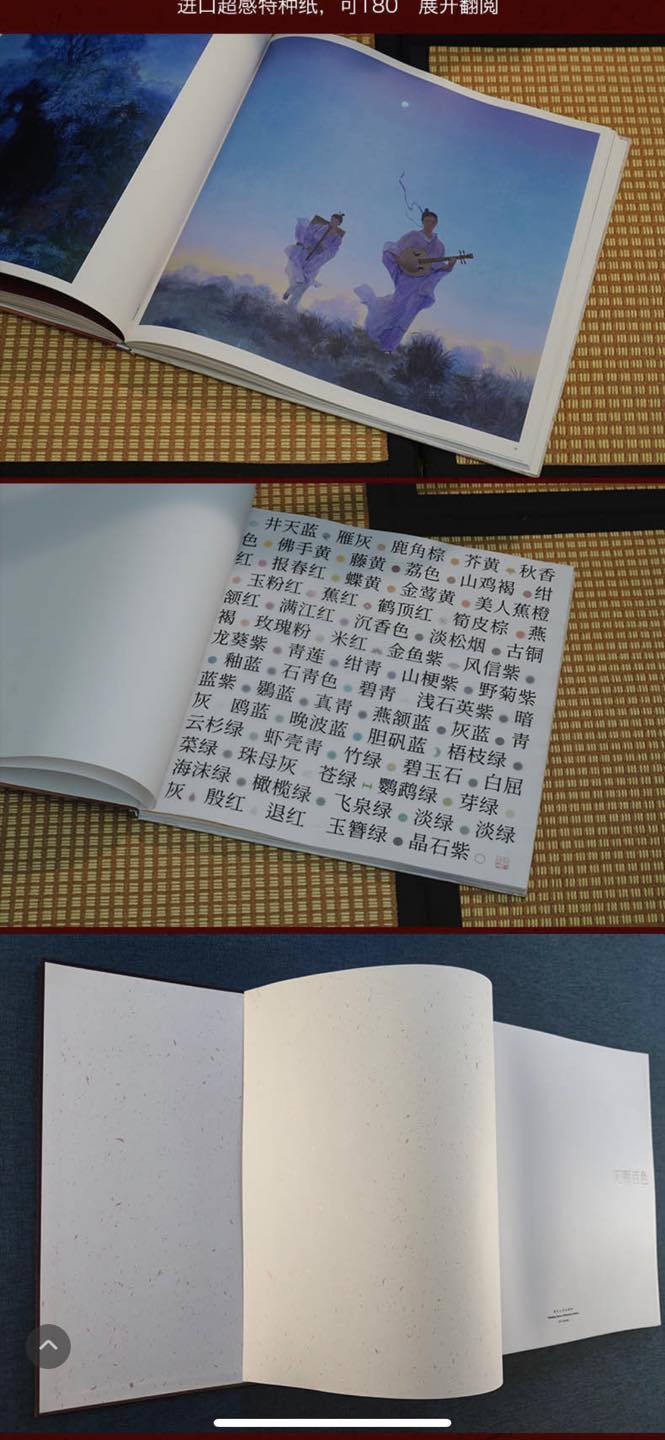 进口超感特种纸，可180°展开翻阅
井天蓝 雁灰 鹿角棕 芥黄 秋香
色 佛手黄 藤黄 荔色 山鸡褐 绀
红 报春红 蝶黄 金莺黄 美人蕉橙
玉粉红 蕉红 鹤顶红 筍皮棕 燕
颔红 满江红 沉香色 淡松烟 古铜
褐 玫瑰粉 米红 金鱼紫 风信紫
龙葵紫 青莲 绀青 山梗紫 野菊紫
釉蓝 石青色 碧青 浅石英紫 暗
蓝紫 鷃蓝 真青 燕颔蓝 灰蓝 青
灰 鸥蓝 晚波蓝 胆矾蓝 梧枝绿
云杉绿 虾壳青 竹绿 碧玉石 白屈
菜绿 珠母灰 苍绿 鹦鹉绿 芽绿
海沫绿 橄榄绿 飞泉绿 淡绿 淡绿
灰 殷红 退红 玉簪绿 晶石紫